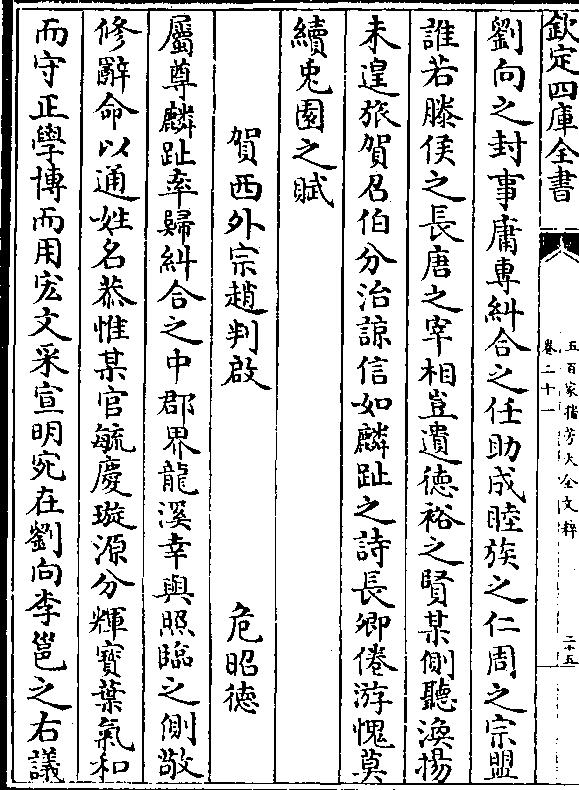 欽定四庫全書
五百家播芳大全文粹
卷二十一
二十五
劉向之封事庸專糾合之任助成睦族之仁周之宗盟
誰若滕侯之長唐之宰相豈遺德裕之賢某側聽渙揚
未遑旅賀召伯分治諒信如麟趾之詩長卿倦游愧莫
續兎園之賦
賀西外宗趙判啟 危昭德
屬尊麟趾率歸糾合之中郡界龍溪幸與照臨之側敬
修辭命以通姓名恭惟某官毓慶璇源分輝寳葉氣和
而守正學博而用宏文采宣明宛在劉向李邕之右議